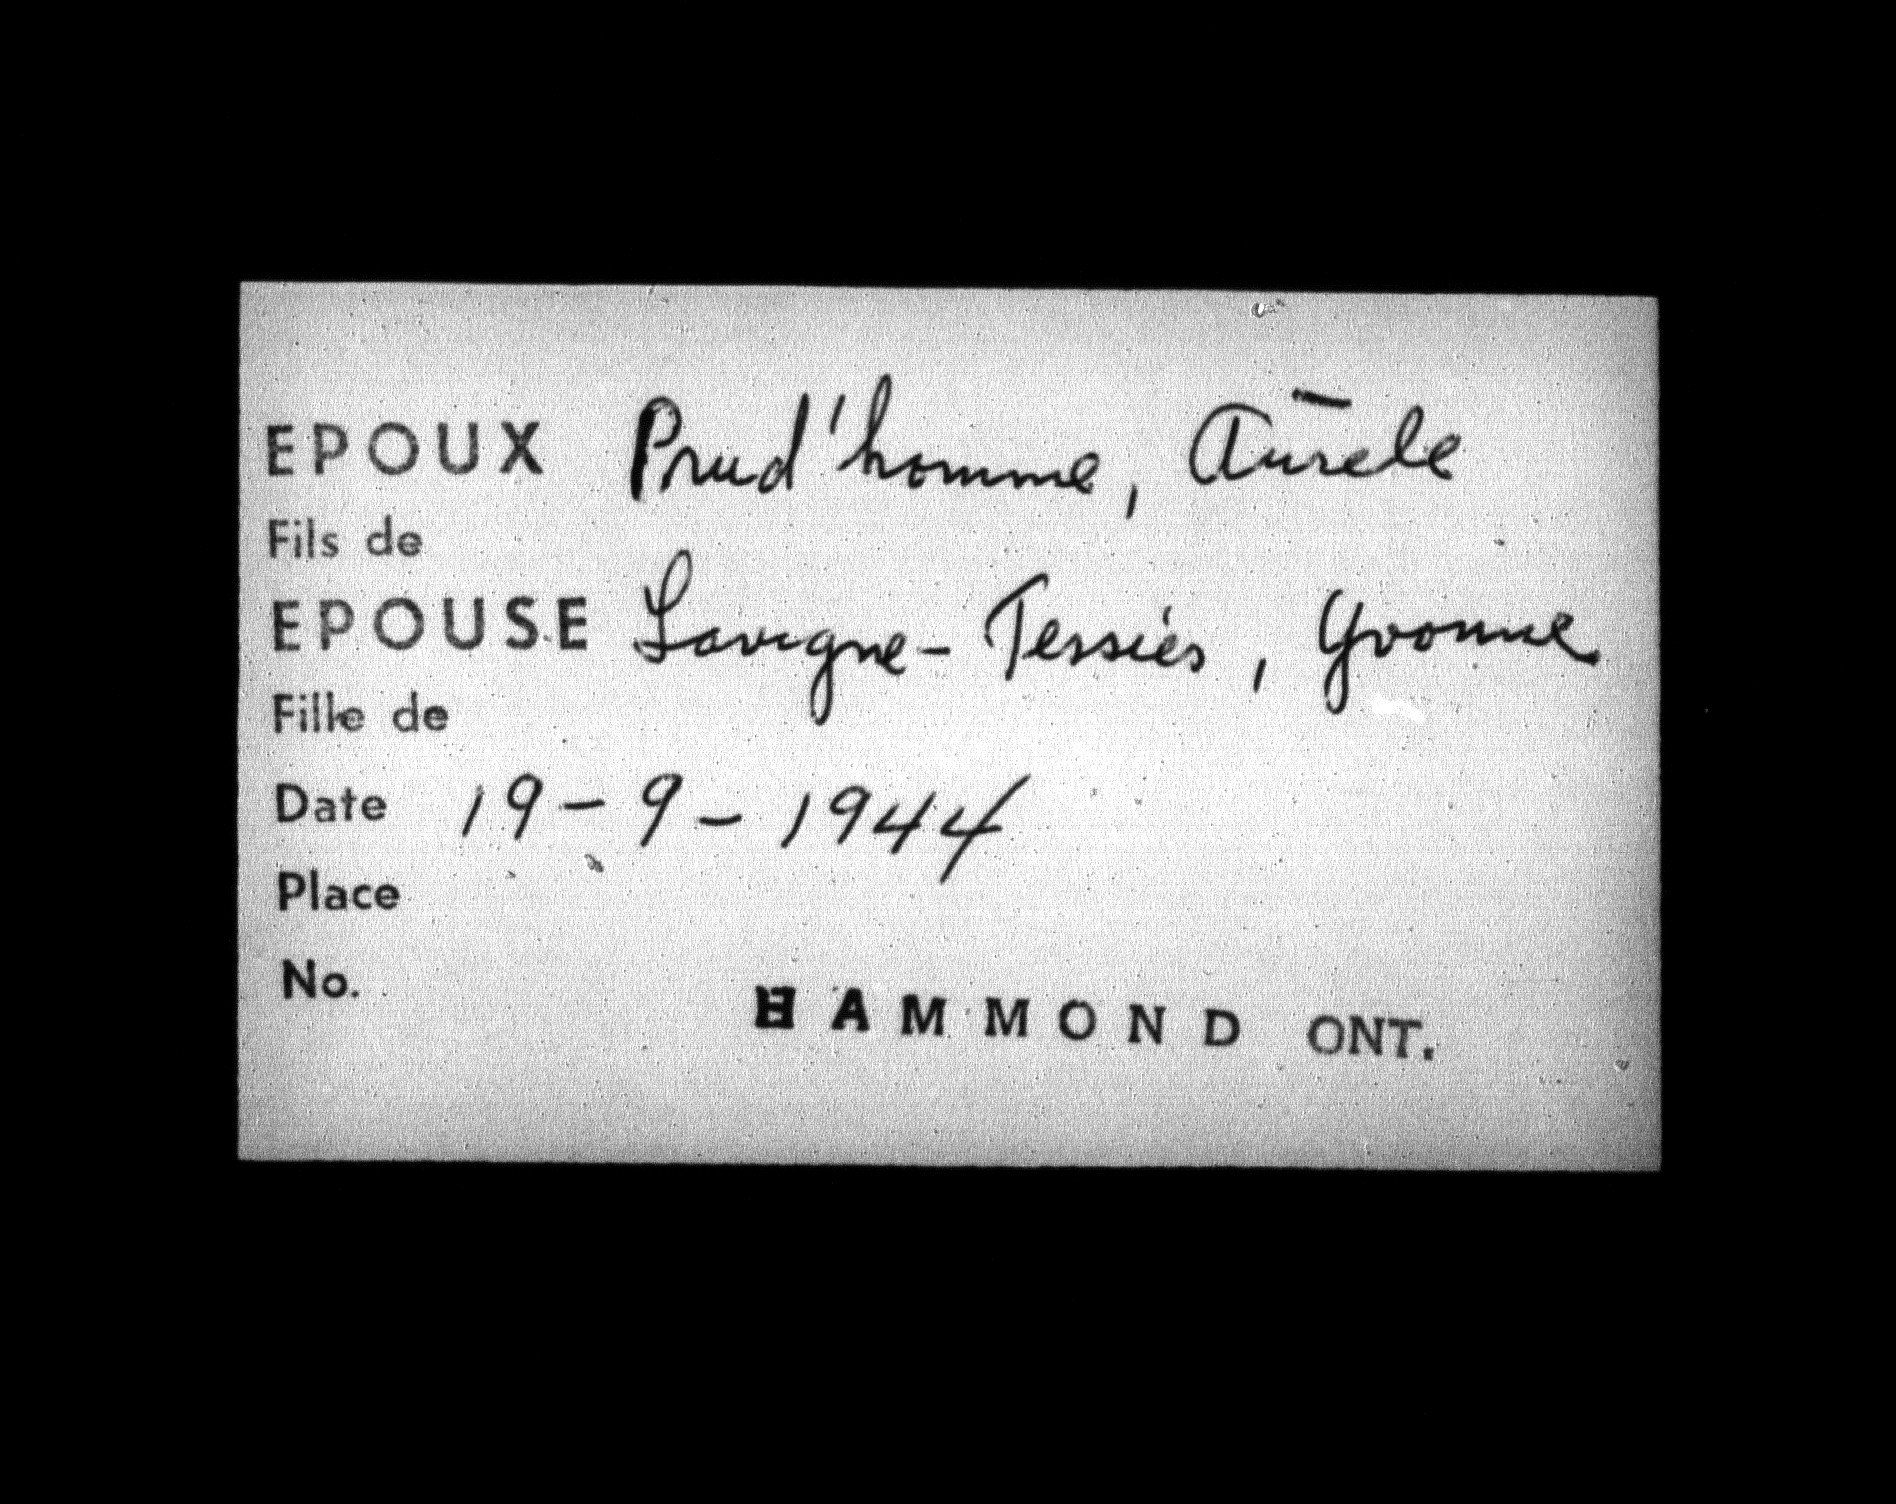 EPOUX Prud'homme, Aurele
Fils de
EPOUSE Lavigne-Tessier, Yvonne
Fille de
Date 19-9-1944
Place
No.
HAMMOND ONT.